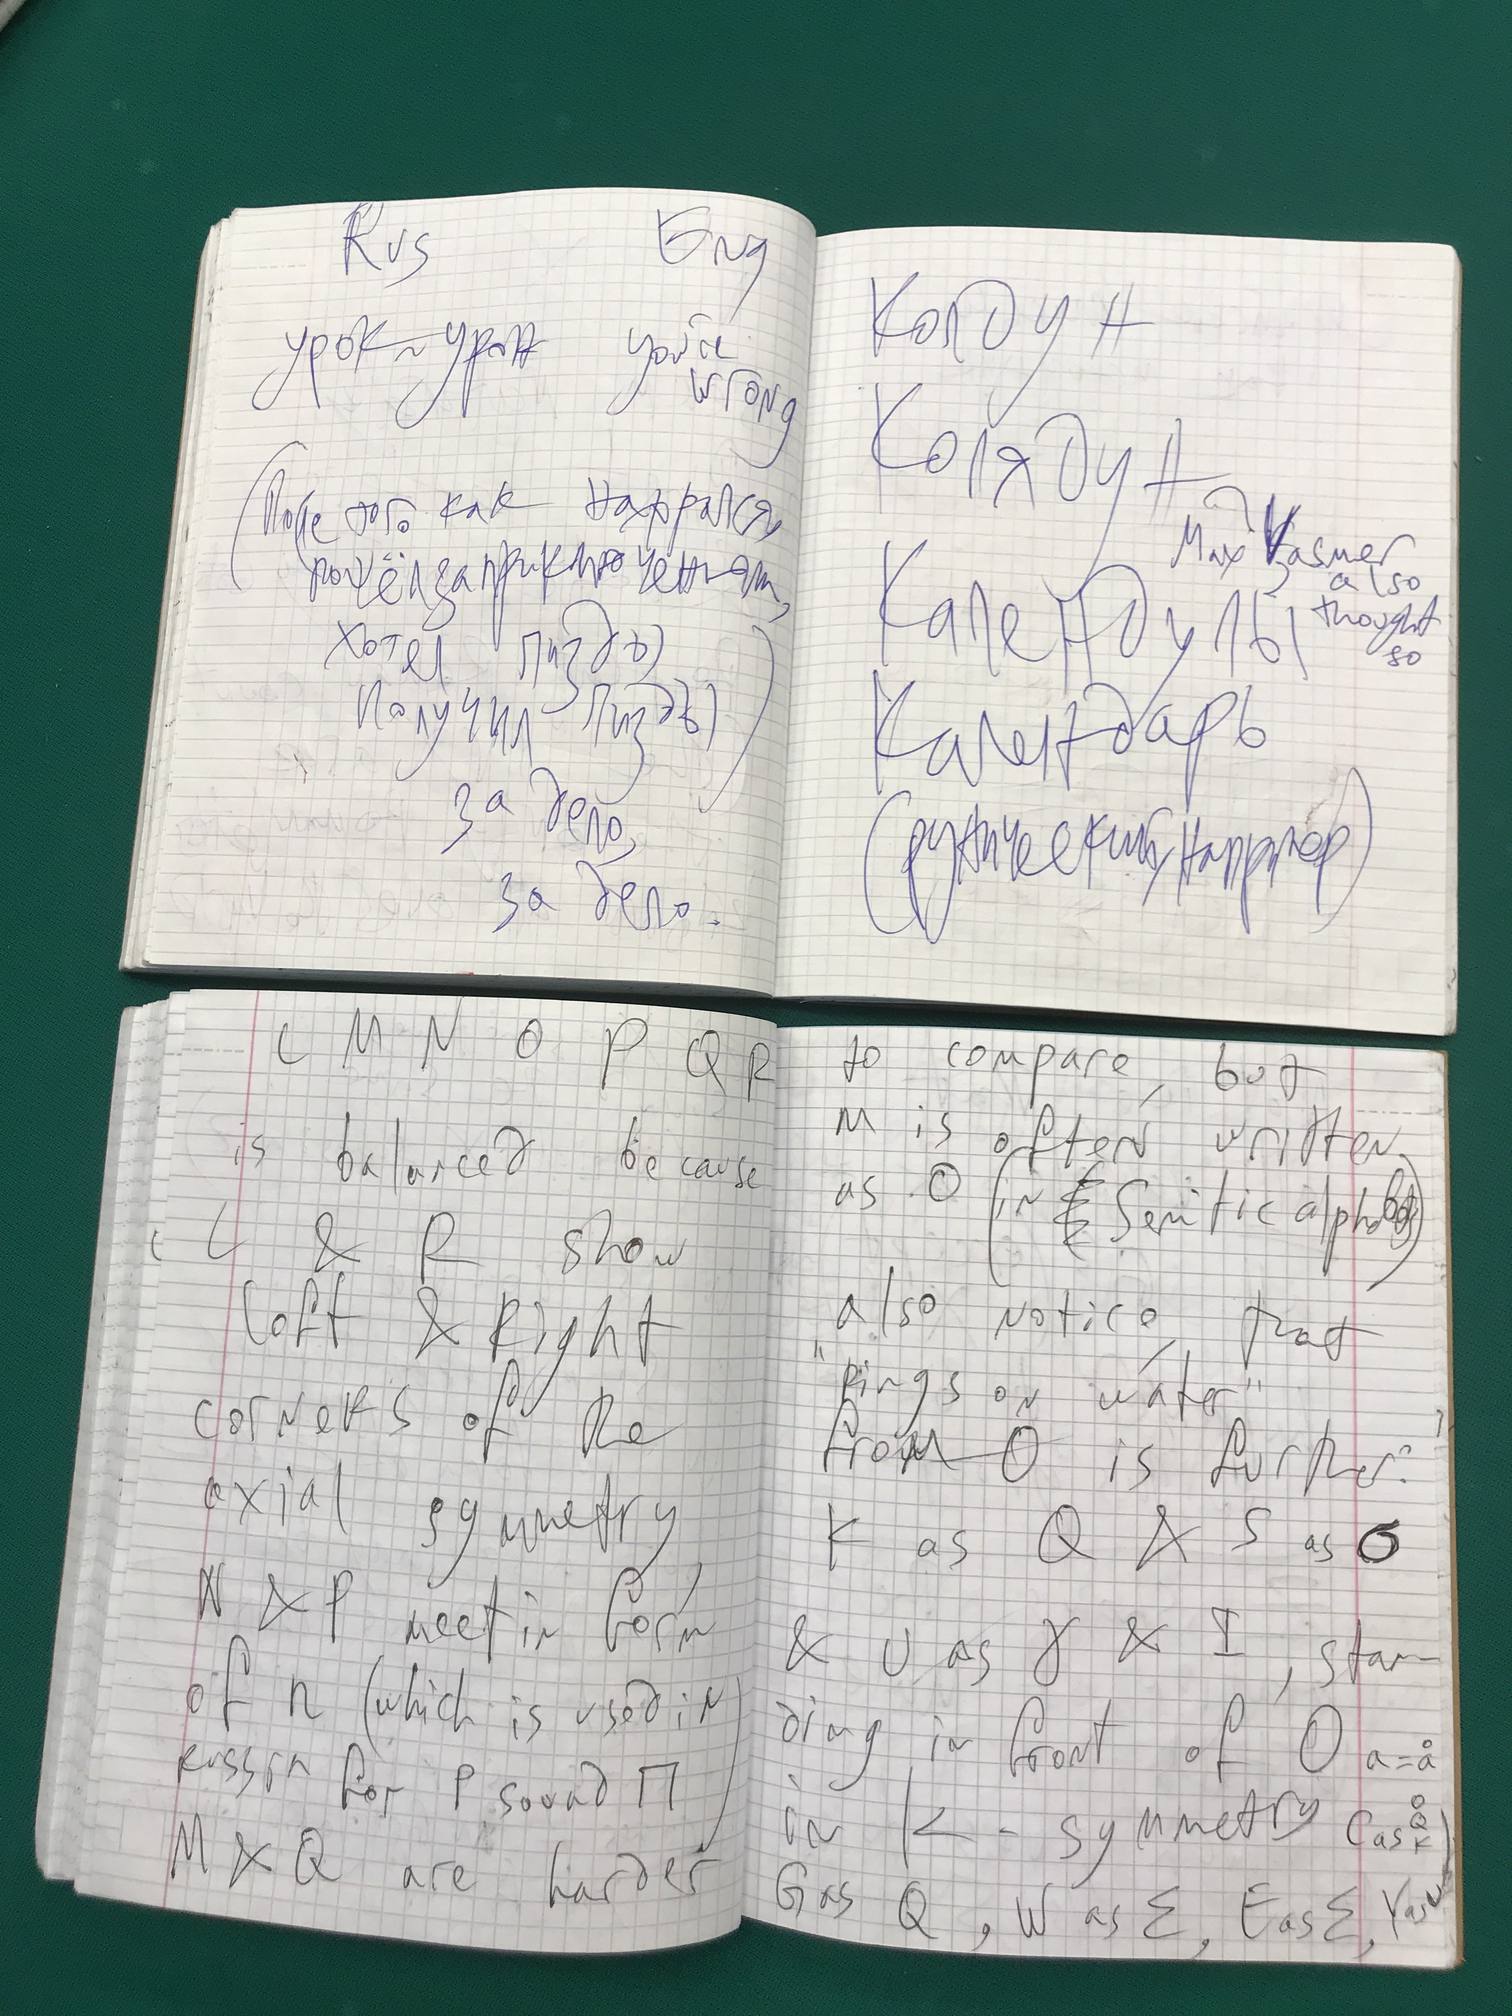 Rus Eng
урок~урон you're
wrong
(После того как нажрался,
пошёл за приключениями,
хотел пизды
получил пизды)
за дело,
за дело.
Колдун
Колядун
Max Vasmer
also
thought
so
Календулы
Календарь
(рунический, например)
L M N O P Q R
is balanced because
L & R show
Left & Right
corners of the
axial symmetry,
N & P meet in form
of n (which is used in
Russia for P sound П)
M & Q are harder
to compare, but
M is often written
as O (in Semitic alphabets)
also notice, that
"rings on water"
from O is further:
K as Q & S as σ
& U as Y & I, stan-
ding in front of O a=å
in K-symmetry C as Q K)
G as Q, W as Σ, E as Σ, Y as